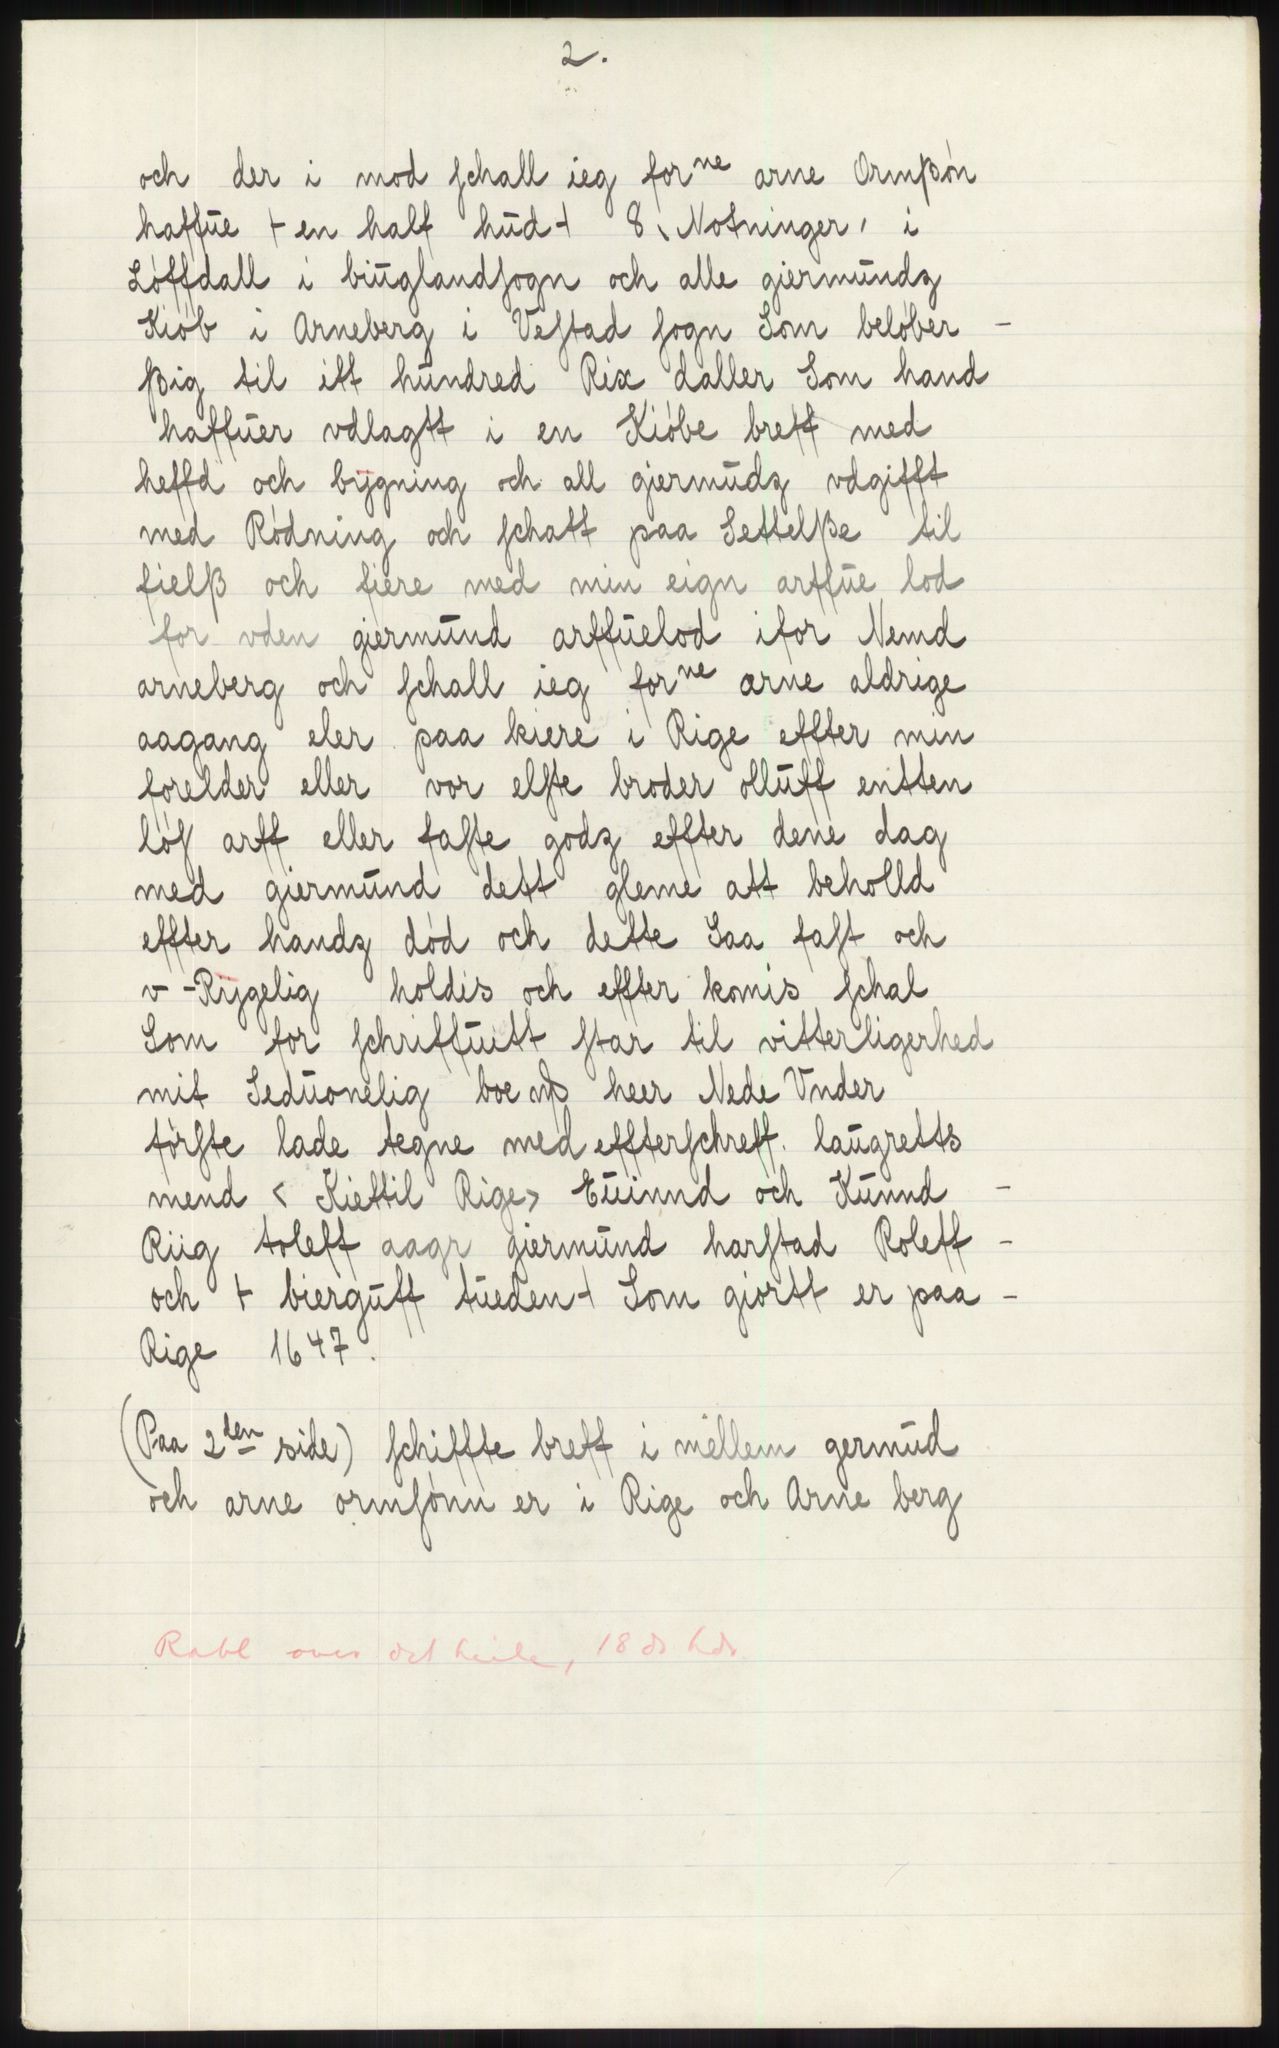 2.
och der i mod schall ieg forne arne Ormßøn
haffue + en half hud + 8 Notninger i
Løffdall i biuglandsogn och alle giermundz
Kiøb i Arneberg i Vestad sogn Som beløber -
ßig til itt hundred Rix daller Som hand
haffuer vdlagtt i en Kiøbe breff med
heffd och bÿgning och all giermudz vdgifft
med Rødning och schatt paa Settelße til
fielß och fiere med min eign arffue lod
for vden giermund arffuelod i for Nemd
arneberg och schall ieg forne arne aldrige
aagang eler paa kiere i Rige effter min
forelder eller vor elste broder olluff entten
løs arff eller faste godz effter dene dag
med giermund dett gleme att beholld
effter handz død och dette Saa fast och
v-Rÿgelig holdis och effter komis schal
Som for schriffuitt star til vitterligerhed
mit Seduonelig boe heer Nede Vnder
tørste lade tegne med effterschreff. laugretts
mend < Kiettil Rige> Euinnd och Kunnd -
Riig toleff aagr giermund harstad Roleff -
och + bierguff tueden + Som giortt er paa -
Rige 1647.
(Paa 2den side) schiffte breff i mellem germud
och arne ormsønn er i Rige och Arne berg
over det heile, 18 do hdr.